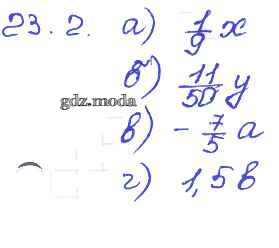 23.2. а) 1/9 x
б) 11/50 y
gdz.moda
в) - 7/5 a
г) 1,5 b